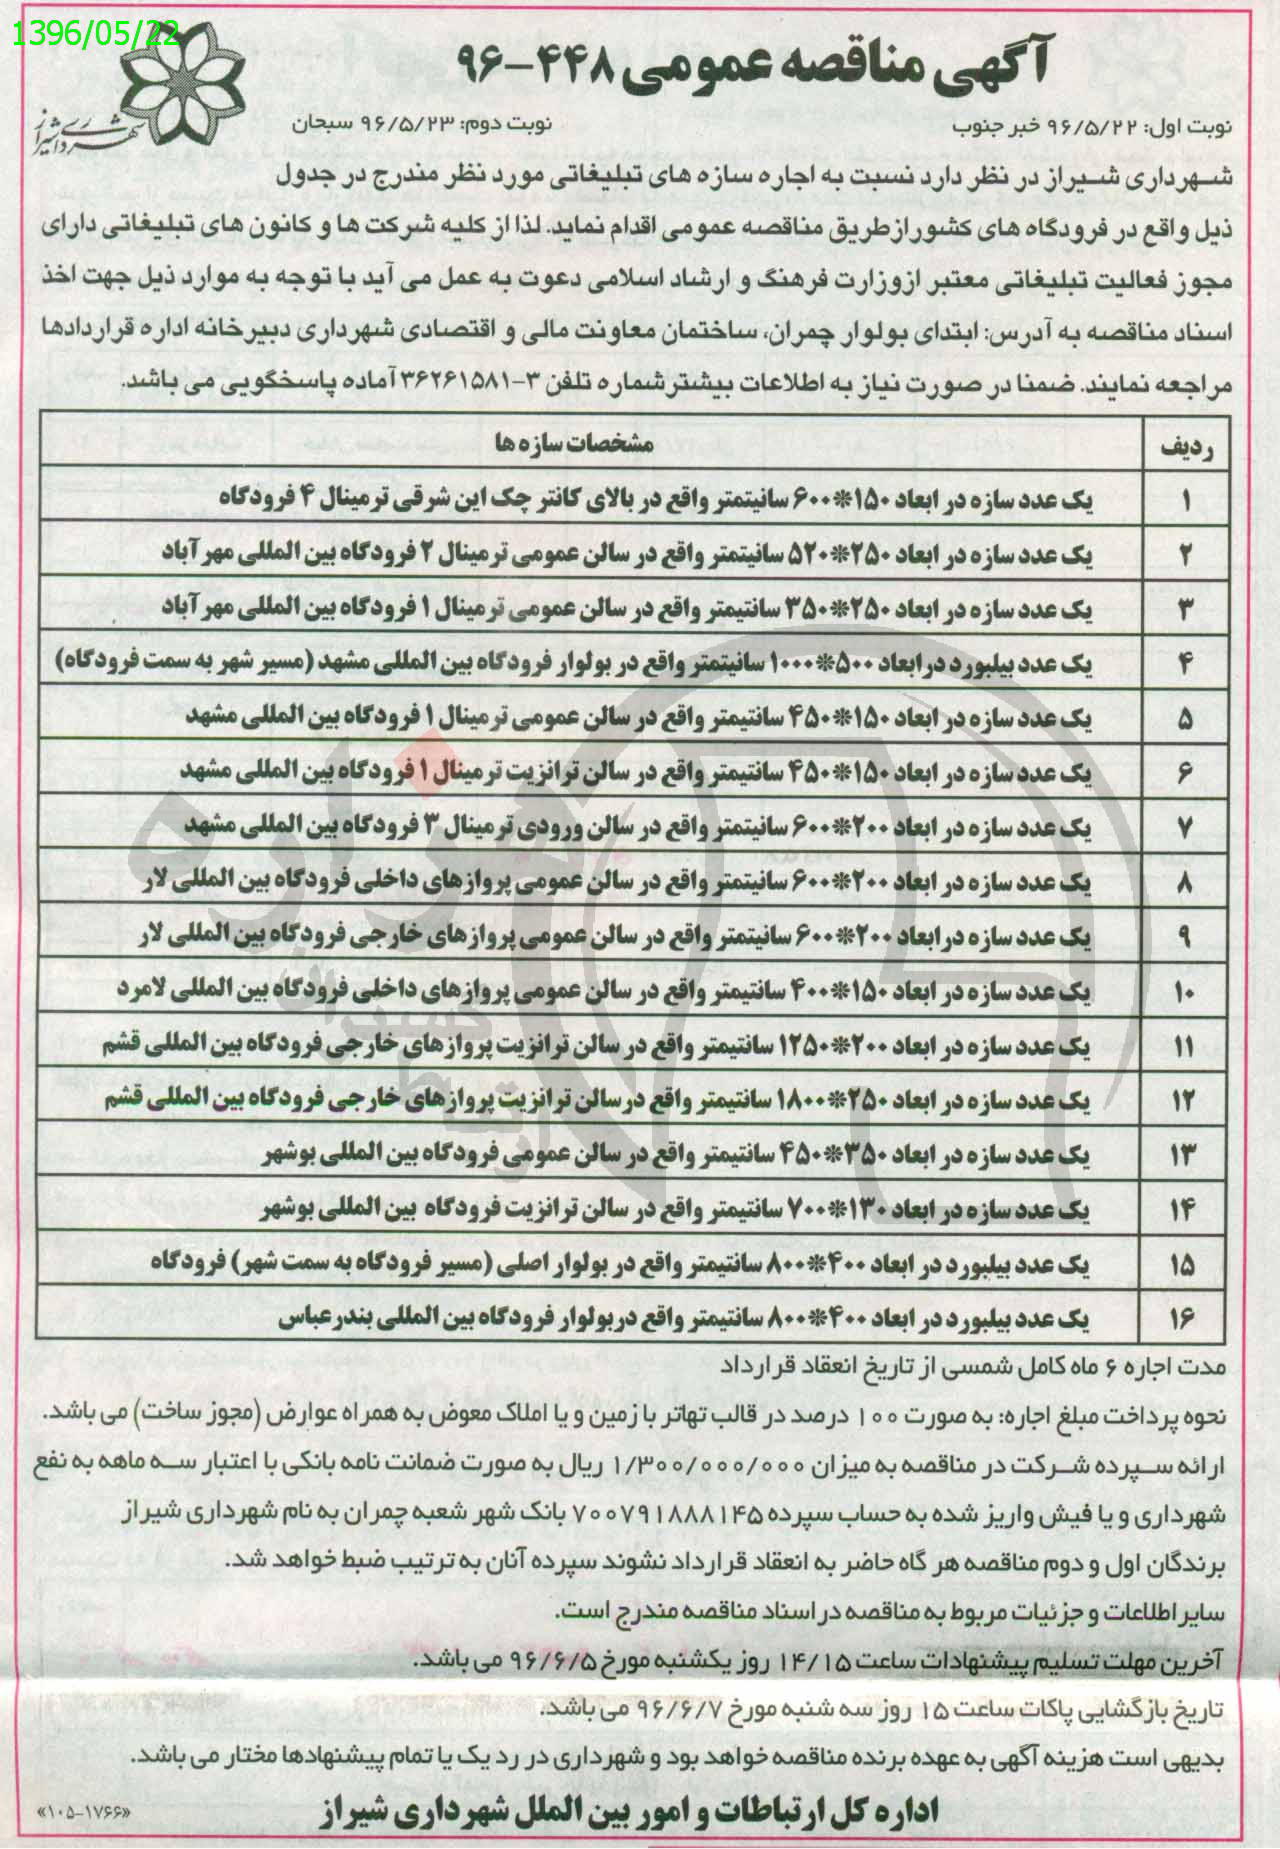 1396/05/22
آگهی مناقصه عمومی ۴۴۸-۹۶
شهرداری شیراز
نوبت اول: ۹۶/۵/۲۲ خبر جنوب
نوبت دوم: ۹۶/۵/۲۳ سبحان
شهرداری شیراز در نظر دارد نسبت به اجاره سازه های تبلیغاتی مورد نظر مندرج در جدول
ذیل واقع در فرودگاه های کشور ازطریق مناقصه عمومی اقدام نماید. لذا از کلیه شرکت ها و کانون های تبلیغاتی دارای
مجوز فعالیت تبلیغاتی معتبر ازوزارت فرهنگ و ارشاد اسلامی دعوت به عمل می آید با توجه به موارد ذیل جهت اخذ
اسناد مناقصه به آدرس: ابتدای بولوار چمران، ساختمان معاونت مالی و اقتصادی شهرداری دبیرخانه اداره قراردادها
مراجعه نمایند. ضمنا در صورت نیاز به اطلاعات بیشتر شماره تلفن ۳-۳۶۲۶۱۵۸۱ آماده پاسخگویی می باشد.
ردیف مشخصات سازه ها
۱ یک عدد سازه در ابعاد ۱۵۰*۶۰۰ سانیتمتر واقع در بالای کانتر چک این شرقی ترمینال ۴ فرودگاه
۲ یک عدد سازه در ابعاد ۲۵۰*۵۲۰ سانیتمتر واقع در سالن عمومی ترمینال ۲ فرودگاه بین المللی مهرآباد
۳ یک عدد سازه در ابعاد ۲۵۰*۳۵۰ سانتیمتر واقع در سالن عمومی ترمینال ۱ فرودگاه بین المللی مهرآباد
۴ یک عدد بیلبورد درابعاد ۵۰۰*۱۰۰۰ سانیتمتر واقع در بولوار فرودگاه بین المللی مشهد (مسیر شهر به سمت فرودگاه)
۵ یک عدد سازه در ابعاد ۱۵۰*۴۵۰ سانتیمتر واقع در سالن عمومی ترمینال ۱ فرودگاه بین المللی مشهد
۶ یک عدد سازه در ابعاد ۱۵۰*۴۵۰ سانتیمتر واقع در سالن ترانزیت ترمینال ۱ فرودگاه بین المللی مشهد
۷ یک عدد سازه در ابعاد ۲۰۰*۶۰۰ سانیتمتر واقع در سالن ورودی ترمینال ۳ فرودگاه بین المللی مشهد
۸ یک عدد سازه در ابعاد ۲۰۰*۶۰۰ سانیتمتر واقع در سالن عمومی پروازهای داخلی فرودگاه بین المللی لار
۹ یک عدد سازه درابعاد ۲۰۰*۶۰۰ سانیتمتر واقع در سالن عمومی پروازهای خارجی فرودگاه بین المللی لار
۱۰ یک عدد سازه در ابعاد ۱۵۰*۴۰۰ سانتیمتر واقع در سالن عمومی پروازهای داخلی فرودگاه بین المللی لامرد
۱۱ یک عدد سازه در ابعاد ۲۰۰*۱۲۵۰ سانتیمتر واقع در سالن ترانزیت پروازهای خارجی فرودگاه بین المللی قشم
۱۲ یک عدد سازه در ابعاد ۲۵۰*۱۸۰۰ سانتیمتر واقع درسالن ترانزیت پروازهای خارجی فرودگاه بین المللی قشم
۱۳ یک عدد سازه در ابعاد ۳۵۰*۴۵۰ سانتیمتر واقع در سالن عمومی فرودگاه بین المللی بوشهر
۱۴ یک عدد سازه در ابعاد ۱۳۰*۷۰۰ سانتیمتر واقع در سالن ترانزیت فرودگاه بین المللی بوشهر
۱۵ یک عدد بیلبورد در ابعاد ۴۰۰*۸۰۰ سانتیمتر واقع در بولوار اصلی (مسیر فرودگاه به سمت شهر) فرودگاه
۱۶ یک عدد بیلبورد در ابعاد ۴۰۰*۸۰۰ سانتیمتر واقع دربولوار فرودگاه بین المللی بندرعباس
مدت اجاره ۶ ماه کامل شمسی از تاریخ انعقاد قرارداد
نحوه پرداخت مبلغ اجاره: به صورت ۱۰۰ درصد در قالب تهاتر با زمین و یا املاک معوض به همراه عوارض (مجوز ساخت) می باشد.
ارائه سپرده شرکت در مناقصه به میزان ۱/۳۰۰/۰۰۰/۰۰۰ ریال به صورت ضمانت نامه بانکی با اعتبار سه ماهه به نفع
شهرداری و یا فیش واریز شده به حساب سپرده ۷۰۰۷۹۱۸۸۸۱۴۵ بانک شهر شعبه چمران به نام شهرداری شیراز
برندگان اول و دوم مناقصه هر گاه حاضر به انعقاد قرارداد نشوند سپرده آنان به ترتیب ضبط خواهد شد.
سایر اطلاعات و جزئیات مربوط به مناقصه در اسناد مناقصه مندرج است.
آخرین مهلت تسلیم پیشنهادات ساعت ۱۴/۱۵ روز یکشنبه مورخ ۹۶/۶/۵ می باشد.
تاریخ بازگشایی پاکات ساعت ۱۵ روز سه شنبه مورخ ۹۶/۶/۷ می باشد.
بدیهی است هزینه آگهی به عهده برنده مناقصه خواهد بود و شهرداری در رد یک یا تمام پیشنهادها مختار می باشد.
اداره کل ارتباطات و امور بین الملل شهرداری شیراز
«۱۰۵-۱۷۶۶»